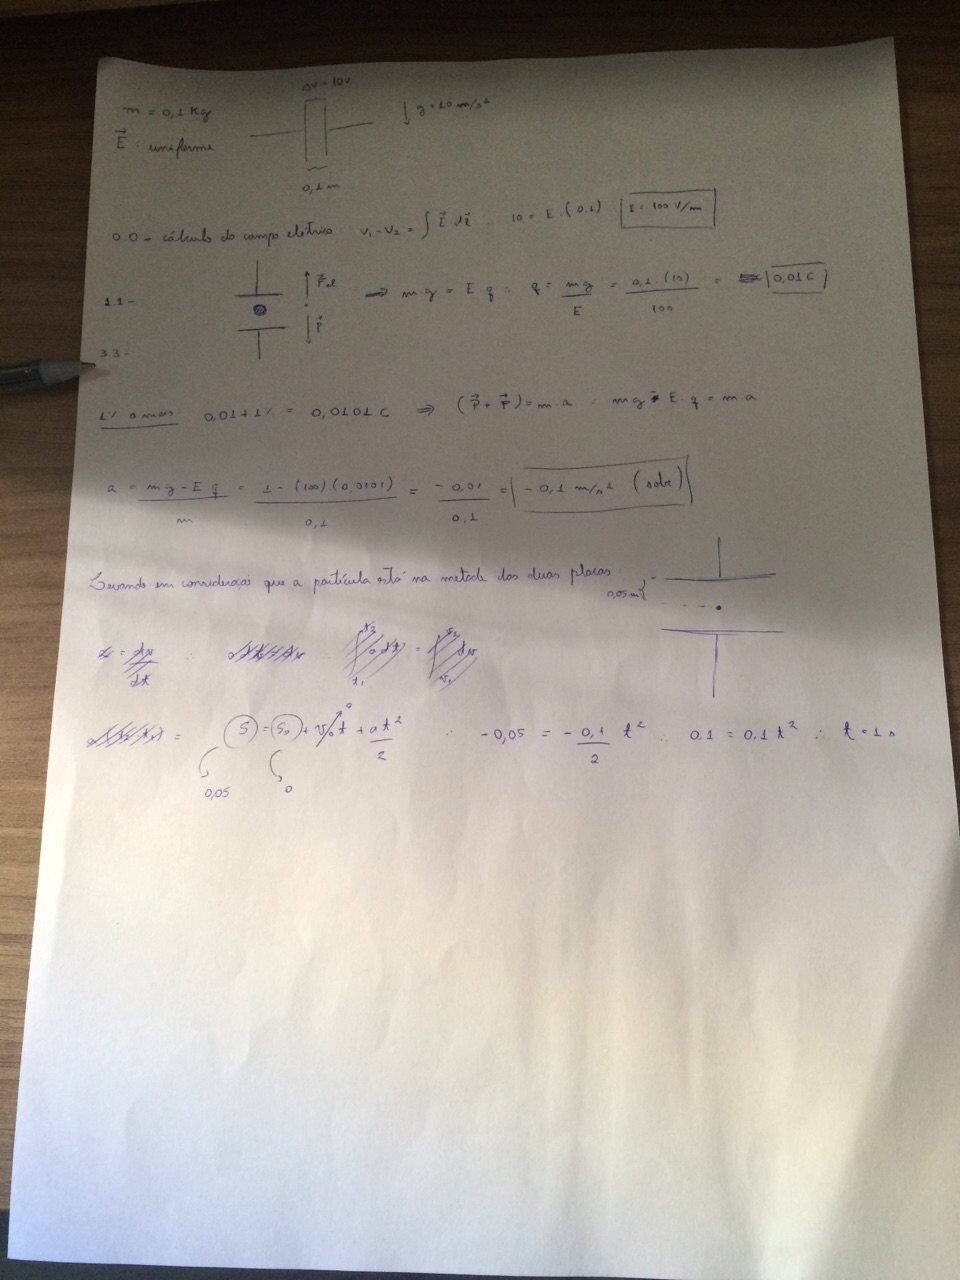 ΔV = 10V
m = 0,1 kg
g = 10 m/s²
E⃗ : uniforme
0,1 m
0.0 - cálculo do campo elétrico: V₁ - V₂ = ∫ E⃗ dl⃗ ∴ 10 = E.(0,1) E = 100 V/m
1.1 - F⃗el P⃗ ⇒ mg = E q ∴ q = mg/E = 0,1.(10)/100 = 0,01 C
3.3 -
1% a mais 0,01 + 1% = 0,0101 C ⇒ (P⃗ + F⃗) = m.a ∴ mg - E.q = m a
a = mg - E q/m = 1 - (100).(0,0101)/0,1 = -0,01/0,1 = -0,1 m/s² (sobe)
Levando em consideração que a partícula está na metade das duas placas
0,05m
S = S₀ + v₀t + at²/2 ∴ -0,05 = -0,1/2 t² ∴ 0,1 = 0,1 t² ∴ t = 1 s
0
0,05 0